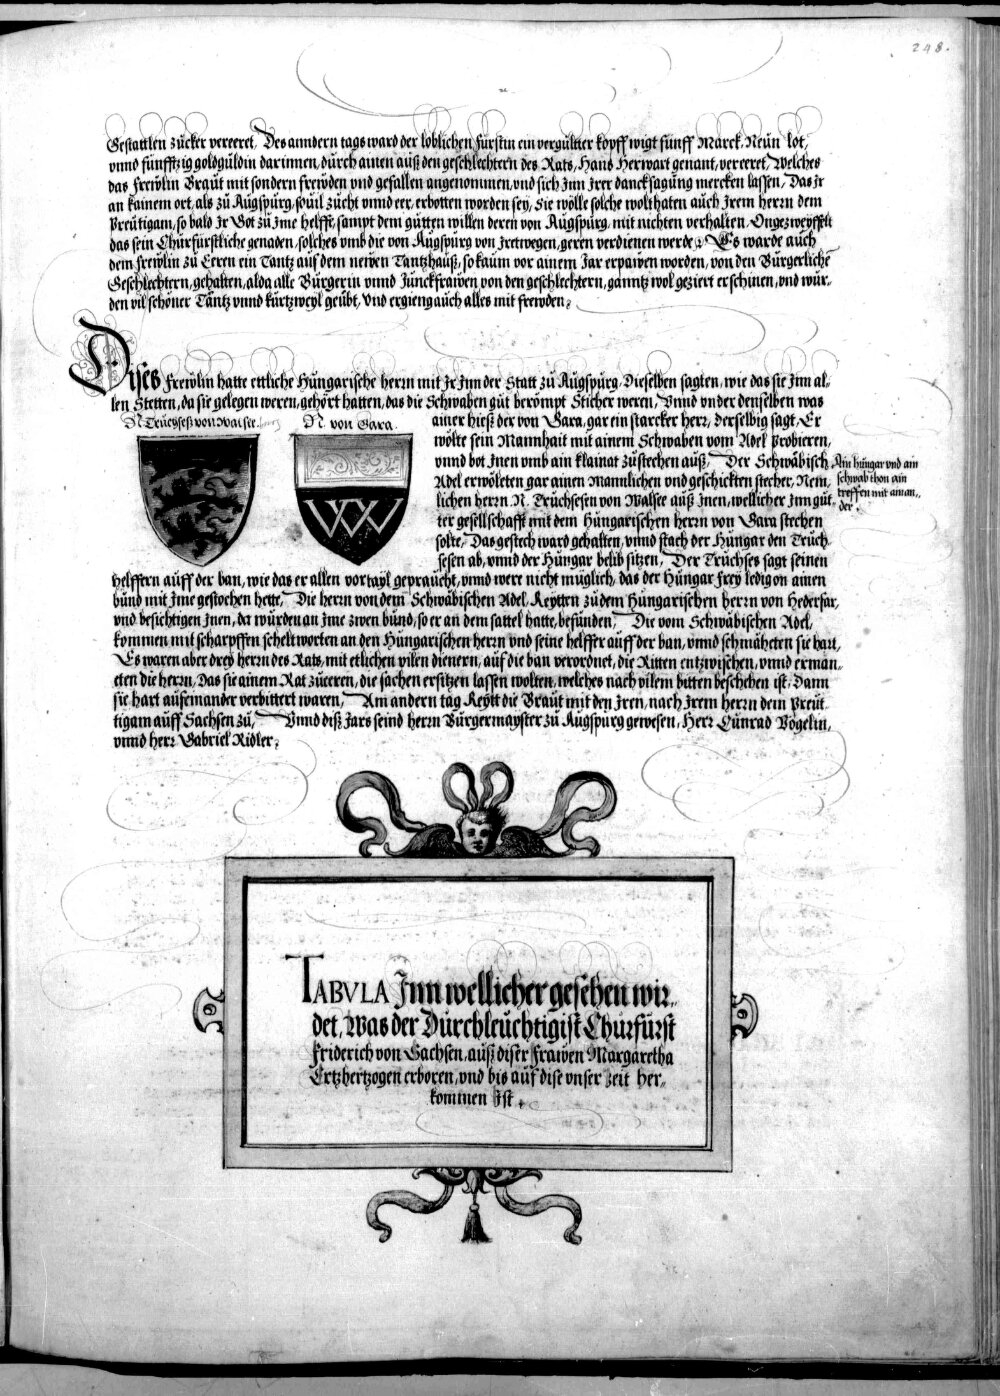 248.
Gestattlen zücker vereeret. Des anndern tags ward der loblichen fürstin ein vergülter kopff wigt fünff Marck, Neün lot,
vnnd fünfftzig goldgüldin darinnen, dürch ainen auß den geschlechtern des Rats, Hans Herwart genant, vereeret, Welches
das frewlin Braut mit sondern frewden vnd gefallen angenommen, vnd sich Inn Irer dancksagung mercken lassen, Das Ir
an kainem ort, als zü Aügspürg, souil zücht vnnd eer, erbotten worden sey, Sie wölle solche wolthaten auch Irem herrn dem
Preütigam, so bald Ir Got zü Ime helffe, sampt dem gütten willen deren von Aügspürg, mit nichten verhalten, Ongezweyffelt
das sein Chürfürstliche genaden, solches vmb die von Aügspürg von Iretwegen, geren verdienen werde, Es warde auch
dem frewlin zü Eeren ein Tantz auf dem newen Tantzhauß, so kaum vor ainem Jar erpawen worden, von den Bürgerlichē
Geschlechtern, gehalten, alda alle Bürgerin vnnd Jünckfrawen von den geschlechtern, ganntz wol geziert erschinen, vnd wür-
den vil schöner Täntz vnnd kürtzweyl geübt, Vnd ergieng auch alles mit frewden.
Dises frewlin hatte ettliche Hüngarische herrn mit Ir Inn der Statt zü Aügspürg, Dieselben sagten, wie das sie Inn al-
len Stetten, da sie gelegen weren, gehört hatten, das die Schwaben güt berömpt Stecher weren, Vnnd vnder denselben was
N. Trüchseß von Walser.
N. von Gara.
ainer hieß der von Gara, gar ein starcker herr, derselbig sagt, Er
wölte sein Mannhait mit ainem Schwaben vom Adel probieren,
vnnd bot Inen vmb ain klainat züstechen auß, Der Schwäbisch
Adel erwöleten gar ainen Mannlichen vnd geschickten stecher, Nem-
lichen herrn N. Trüchsesen von Walsee auß Inen, wellicher Inn güt-
ter gesellschafft mit dem Hüngarischen herrn von Gara stechen
solte, Das gestech ward gehalten, vnnd stach der Hüngar den Trüch-
sesen ab, vnnd der Hüngar belib sitzen, Der Trüchses sagt seinen
Ain hüngar vnd ain
schwab thon ain
treffen mit aman-
der.
helffern aüff der ban, wie das er allen vortayl gepraücht, vnnd were nicht müglich, das der Hüngar frey ledig on ainen
bünd mit Ime gestochen hette, Die herrn von dem Schwäbischen Adel, Reytten zü dem Hüngarischen herrn von Hederfar,
vnd besichtigen Inen, da würden an Ime zwen bünd, so er an dem sattel hatte, befünden, Die vom Schwäbischen Adel,
kommen mit scharpffen scheltworten an den Hüngarischen herrn vnd seine helffer aüff der ban, vnnd schmäheten sie hart,
Es waren aber drey herrn des Rats, mit etlichen vilen dienern, auf die ban verordnet, die Ritten entzwischen, vnnd erman-
eten die herrn, Das sie ainem Rat züeeren, die sachen ersitzen lassen wolten, welches nach vilem bitten beschehen ist, Dann
sie hart aufeinander verbittert waren, Am andern tag Reytt die Braut mit den Iren, nach Irem herrn dem Preüt-
tigam auff Sachsen zü, Vnnd diß Jars seind herrn Bürgermayster zü Aügspürg gewesen, Herr Cünrad Vögelin,
vnnd herr Gabriel Ridler.
TABVLA Inn wellicher gesehen wir-
det, Was der Dürchleüchtigist Chürfürst
Friderich von Sachsen, auß diser frawen Margaretha
Ertzhertzogen erboren, vnd bis auf dise vnser zeit her-
kommen Ist.